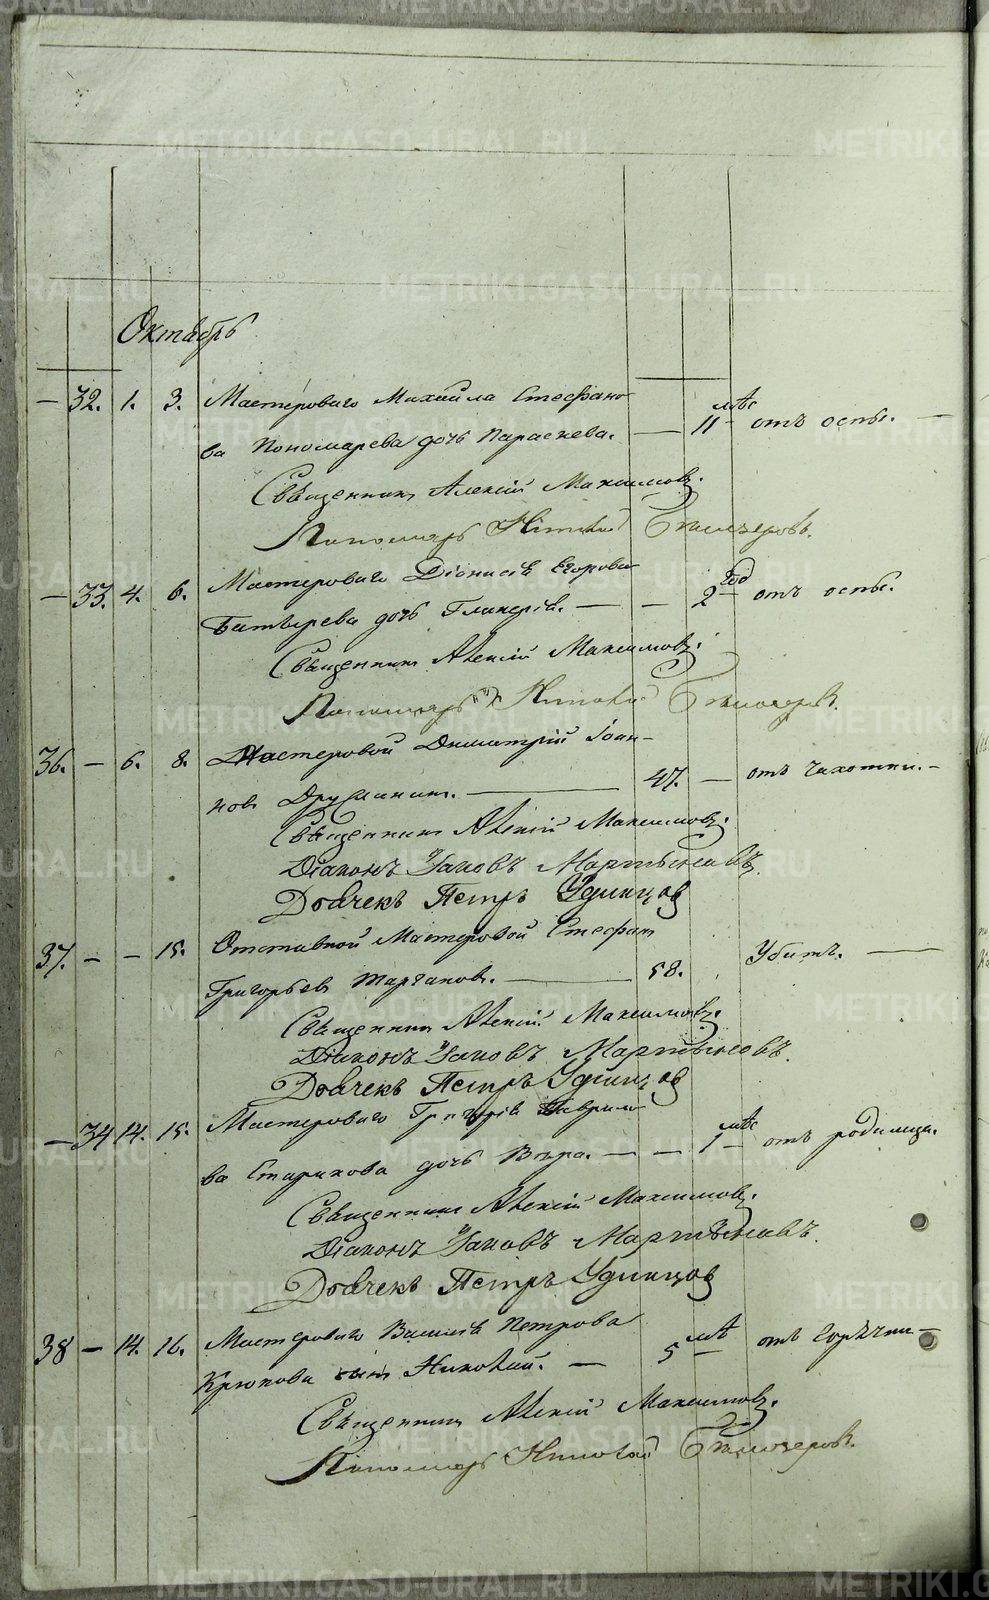 Октябрь
— 32. 1. 3. Мастероваго Михаила Стефано
ва Пономарева дочь Параскева. — 11 мѣс отъ оспы. —
Священникъ Алексій Максимовъ.
Пономарь Николай Бѣлозеровъ.
— 33. 4. 6. Мастероваго Діонисія Егорова
Батырева дочь Гликерія. — — 2 год отъ оспы.
Священникъ Алексій Максимовъ.
Пономарь Николай Бѣлозеровъ.
36. — 6. 8. Мастеровой Димитрій Іоан-
новъ Дружининъ. — 47. — отъ чахотки. —
Священникъ Алексій Максимовъ.
Діаконъ Іаковъ Мартыновъ.
Дьячекъ Петръ Удинцов
37. — — 15. Отставной Мастеровой Стефан
Григорьевъ Шарганов. — 58. Убитъ. —
Священникъ Алексій Максимовъ.
Діаконъ Іаковъ Мартыновъ.
Дьячекъ Петръ Удинцов
— 34 14. 15. Мастероваго Григорія Гаврило
ва Старикова дочь Вѣра. — — 1 мѣс отъ родимца.
Священникъ Алексій Максимовъ.
Діаконъ Іаковъ Мартыновъ.
Дьячекъ Петръ Удинцов
38 — 14. 16. Мастероваго Василія Петрова
Крюкова сынъ Николай. — 5 лѣт отъ горячки —
Священникъ Алексій Максимовъ.
Пономарь Николай Бѣлозеровъ.
METRIKI.GASO-URAL.RU